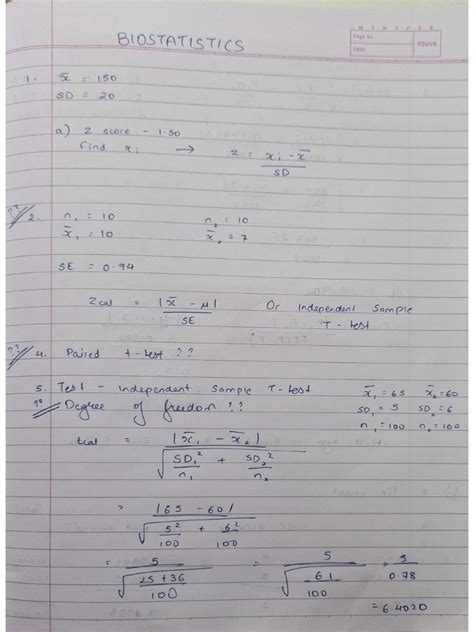 BIOSTATISTICS
M T W T F S S
Page No.:
Date:
YOUVA
1. x̄ = 150
SD = 20
a) Z score - 1.50
Find xᵢ → Z = xᵢ - x̄ / SD
?? 2. n₁ = 10 n₂ = 10
x̄₁ = 10 x̄₂ = 7
SE = 0.94
Zcal = |x̄ - μ| / SE Or Independent Sample
T - test
?? 4. Paired t-test ??
5. Test - Independent Sample T-test x̄₁ = 65 x̄₂ = 60
?? Degree of freedom ?? SD₁ = 5 SD₂ = 6
n₁ = 100 n₂ = 100
tcal = |x̄₁ - x̄₂| / √(SD₁²/n₁ + SD₂²/n₂)
= |65 - 60| / √(5²/100 + 6²/100)
= 5 / √((25 + 36)/100) = 5 / √(61/100) = 5/0.78
= 6.4020